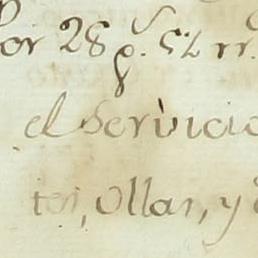 or 28 p.s 52 rr.
el Servicio
tos, ollas, y